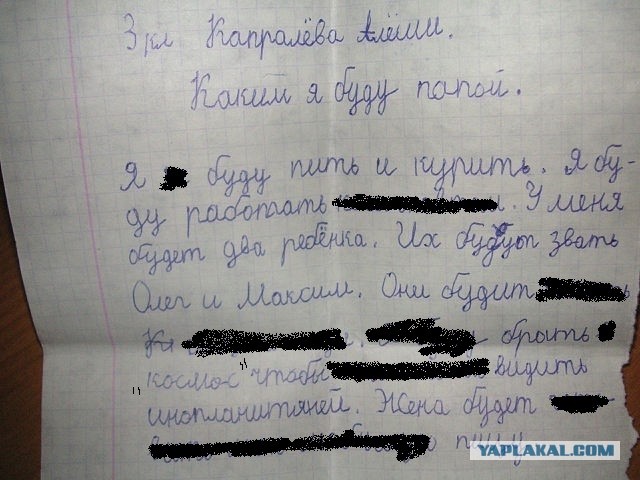 3 кл Капралёва Алёши.
Каким я буду папой.
Я буду пить и курить. Я бу-
ду работать . У меня
будет два ребёнка. Их будут звать
Олег и Максим. Они будит
брать
космос чтобы видить
инопланитяней. Жена будет
пишу
YAPLAKAL.COM